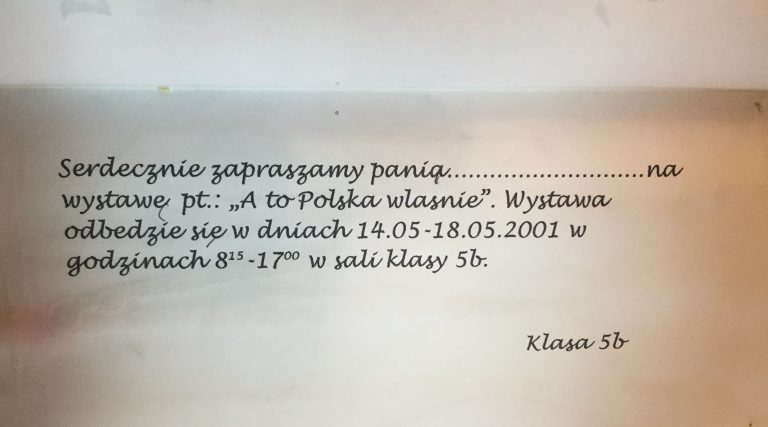 Serdecznie zapraszamy panią............................na
wystawę pt.: „A to Polska wlasnie”. Wystawa
odbedzie się w dniach 14.05-18.05.2001 w
godzinach 8¹⁵-17⁰⁰ w sali klasy 5b.
Klasa 5b